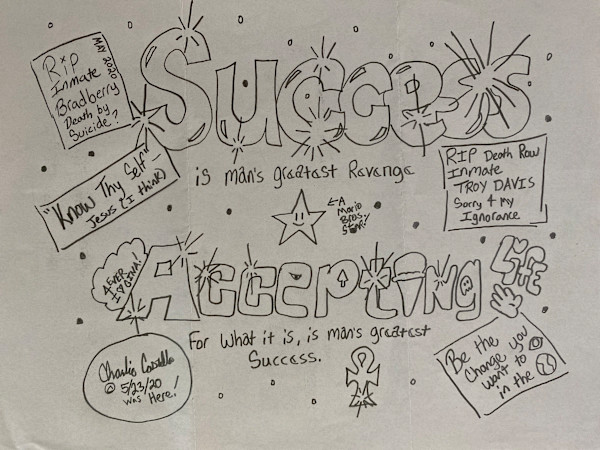 RiP
Inmate
Bradberry
Death by
Suicide?
MAY 2020
Success
is man's greatest Revenge
"Know Thy Self"
- Jesus (I think)
RIP Death Row
Inmate
TROY DAVIS
Sorry 4 My
Ignorance
←A
Mario
Bros.
Star!
4EVER
I ♡ GINA!
Accepting
LiFE
For what it is, is man's greatest
Success.
Charlie Costello
@ 5/23/20
was Here!
Be the
Change you
want to
in the